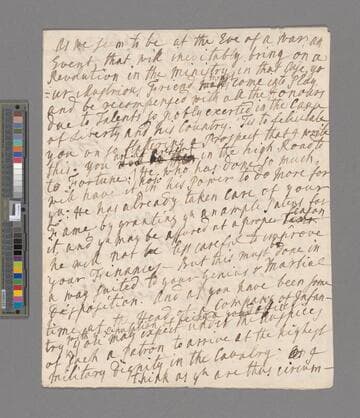 As we seem to be at the Eve of a war an
Event, that will inevitably bring on a
Revolution in the ministry, in that Case yo
=ur Illustrious Friend must come into Play
and be recompensed with all the Honours
due to Talents so nobly exerted in the Cause
of Liberty and his Country. Tis to felicitate
you on so Prospect that I write
this: you in the high Road
to Fortune: He who has done so much,
will have it in his power to do more for
yu. He has already taken Care of your
Fame by granting yu so ample Patent for
it and yu may be assured at a proper season
he will not be less careful to improve
your Finances. But this must be in
a way suited to your Genius & Martial
Disposition. And as you have been some
time at the Head of a Company of Infan-
try you may expect under the Auspices
of such a Patron to arrive at the highest
military Dignity in the Cavalry. I
think as yu are thus circum-